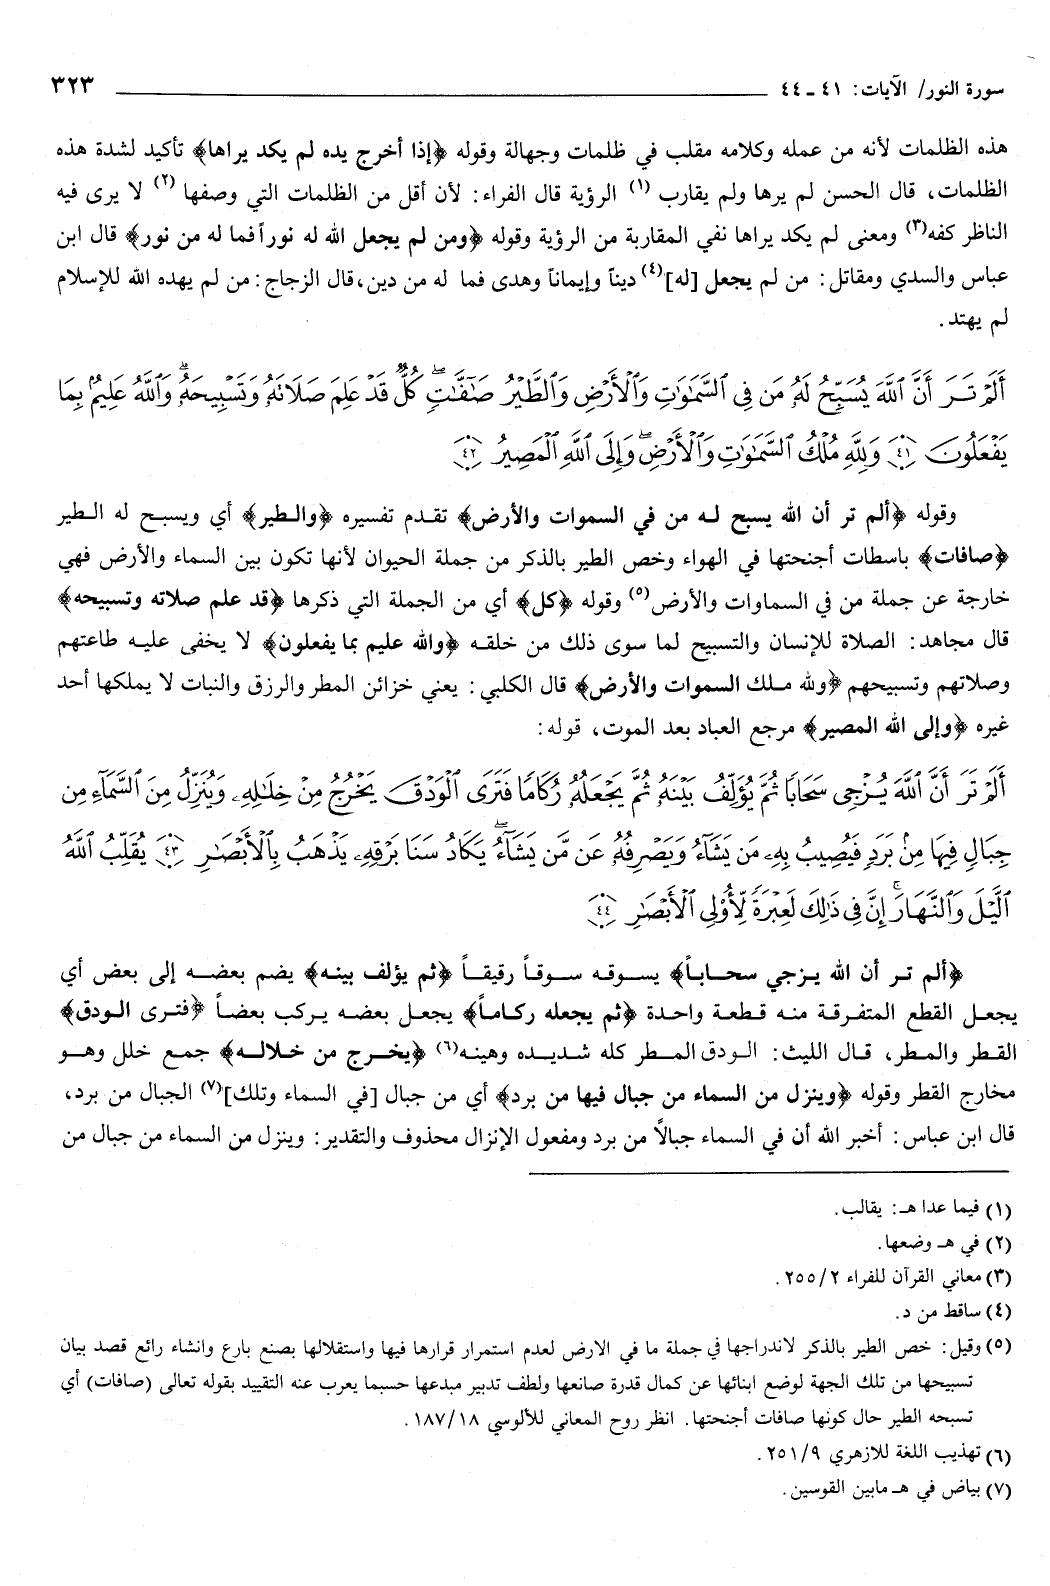 سورة النور/ الآيات: ٤١ ـ ٤٤ ٣٢٣
هذه الظلمات لأنه من عمله وكلامه مقلب في ظلمات وجهالة وقوله ﴿إذا أخرج يده لم يكد يراها﴾ تأكيد لشدة هذه
الظلمات، قال الحسن لم يرها ولم يقارب (١) الرؤية قال الفراء: لأن أقل من الظلمات التي وصفها (٢) لا يرى فيه
الناظر كفه(٣) ومعنى لم يكد يراها نفي المقاربة من الرؤية وقوله ﴿ومن لم يجعل الله له نوراً فما له من نور﴾ قال ابن
عباس والسدي ومقاتل: من لم يجعل [له](٤) ديناً وإيماناً وهدى فما له من دين، قال الزجاج: من لم يهده الله للإسلام
لم يهتد.
أَلَمْ تَرَ أَنَّ ٱللَّهَ يُسَبِّحُ لَهُۥ مَن فِى ٱلسَّمَٰوَٰتِ وَٱلْأَرْضِ وَٱلطَّيْرُ صَٰٓفَّٰتٍۖ كُلٌّ قَدْ عَلِمَ صَلَاتَهُۥ وَتَسْبِيحَهُۥۗ وَٱللَّهُ عَلِيمٌۢ بِمَا
يَفْعَلُونَ ٤١ وَلِلَّهِ مُلْكُ ٱلسَّمَٰوَٰتِ وَٱلْأَرْضِۖ وَإِلَى ٱللَّهِ ٱلْمَصِيرُ ٤٢
وقوله ﴿ألم تر أن الله يسبح له من في السموات والأرض﴾ تقدم تفسيره ﴿والطير﴾ أي ويسبح له الطير
﴿صافات﴾ باسطات أجنحتها في الهواء وخص الطير بالذكر من جملة الحيوان لأنها تكون بين السماء والأرض فهي
خارجة عن جملة من في السماوات والأرض(٥) وقوله ﴿كل﴾ أي من الجملة التي ذكرها ﴿قد علم صلاته وتسبيحه﴾
قال مجاهد: الصلاة للإنسان والتسبيح لما سوى ذلك من خلقه ﴿والله عليم بما يفعلون﴾ لا يخفى عليه طاعتهم
وصلاتهم وتسبيحهم ﴿ولله ملك السموات والأرض﴾ قال الكلبي: يعني خزائن المطر والرزق والنبات لا يملكها أحد
غيره ﴿وإلى الله المصير﴾ مرجع العباد بعد الموت، قوله:
أَلَمْ تَرَ أَنَّ ٱللَّهَ يُزْجِى سَحَابًا ثُمَّ يُؤَلِّفُ بَيْنَهُۥ ثُمَّ يَجْعَلُهُۥ رُكَامًا فَتَرَى ٱلْوَدْقَ يَخْرُجُ مِنْ خِلَٰلِهِۦ وَيُنَزِّلُ مِنَ ٱلسَّمَآءِ مِن
جِبَالٍ فِيهَا مِنۢ بَرَدٍ فَيُصِيبُ بِهِۦ مَن يَشَآءُ وَيَصْرِفُهُۥ عَن مَّن يَشَآءُۖ يَكَادُ سَنَا بَرْقِهِۦ يَذْهَبُ بِٱلْأَبْصَٰرِ ٤٣ يُقَلِّبُ ٱللَّهُ
ٱلَّيْلَ وَٱلنَّهَارَۚ إِنَّ فِى ذَٰلِكَ لَعِبْرَةً لِّأُو۟لِى ٱلْأَبْصَٰرِ ٤٤
﴿ألم تر أن الله يزجي سحاباً﴾ يسوقه سوقاً رقيقاً ﴿ثم يؤلف بينه﴾ يضم بعضه إلى بعض أي
يجعل القطع المتفرقة منه قطعة واحدة ﴿ثم يجعله ركاماً﴾ يجعل بعضه يركب بعضاً ﴿فترى الودق﴾
القطر والمطر، قال الليث: الودق المطر كله شديده وهينه(٦) ﴿يخرج من خلاله﴾ جمع خلل وهو
مخارج القطر وقوله ﴿وينزل من السماء من جبال فيها من برد﴾ أي من جبال [في السماء وتلك](٧) الجبال من برد،
قال ابن عباس: أخبر الله أن في السماء جبالاً من برد ومفعول الإنزال محذوف والتقدير: وينزل من السماء من جبال من
(١) فيما عدا هـ: يقالب.
(٢) في هـ وضعها.
(٣) معاني القرآن للفراء ٢/ ٢٥٥.
(٤) ساقط من د.
(٥) وقيل: خص الطير بالذكر لاندراجها في جملة ما في الارض لعدم استمرار قرارها فيها واستقلالها بصنع بارع وانشاء رائع قصد بيان
تسبيحها من تلك الجهة لوضع ابنائها عن كمال قدرة صانعها ولطف تدبير مبدعها حسبما يعرب عنه التقييد بقوله تعالى (صافات) أي
تسبحه الطير حال كونها صافات أجنحتها. انظر روح المعاني للألوسي ١٨/ ١٨٧.
(٦) تهذيب اللغة للازهري ٩/ ٢٥١.
(٧) بياض في هـ مابين القوسين.